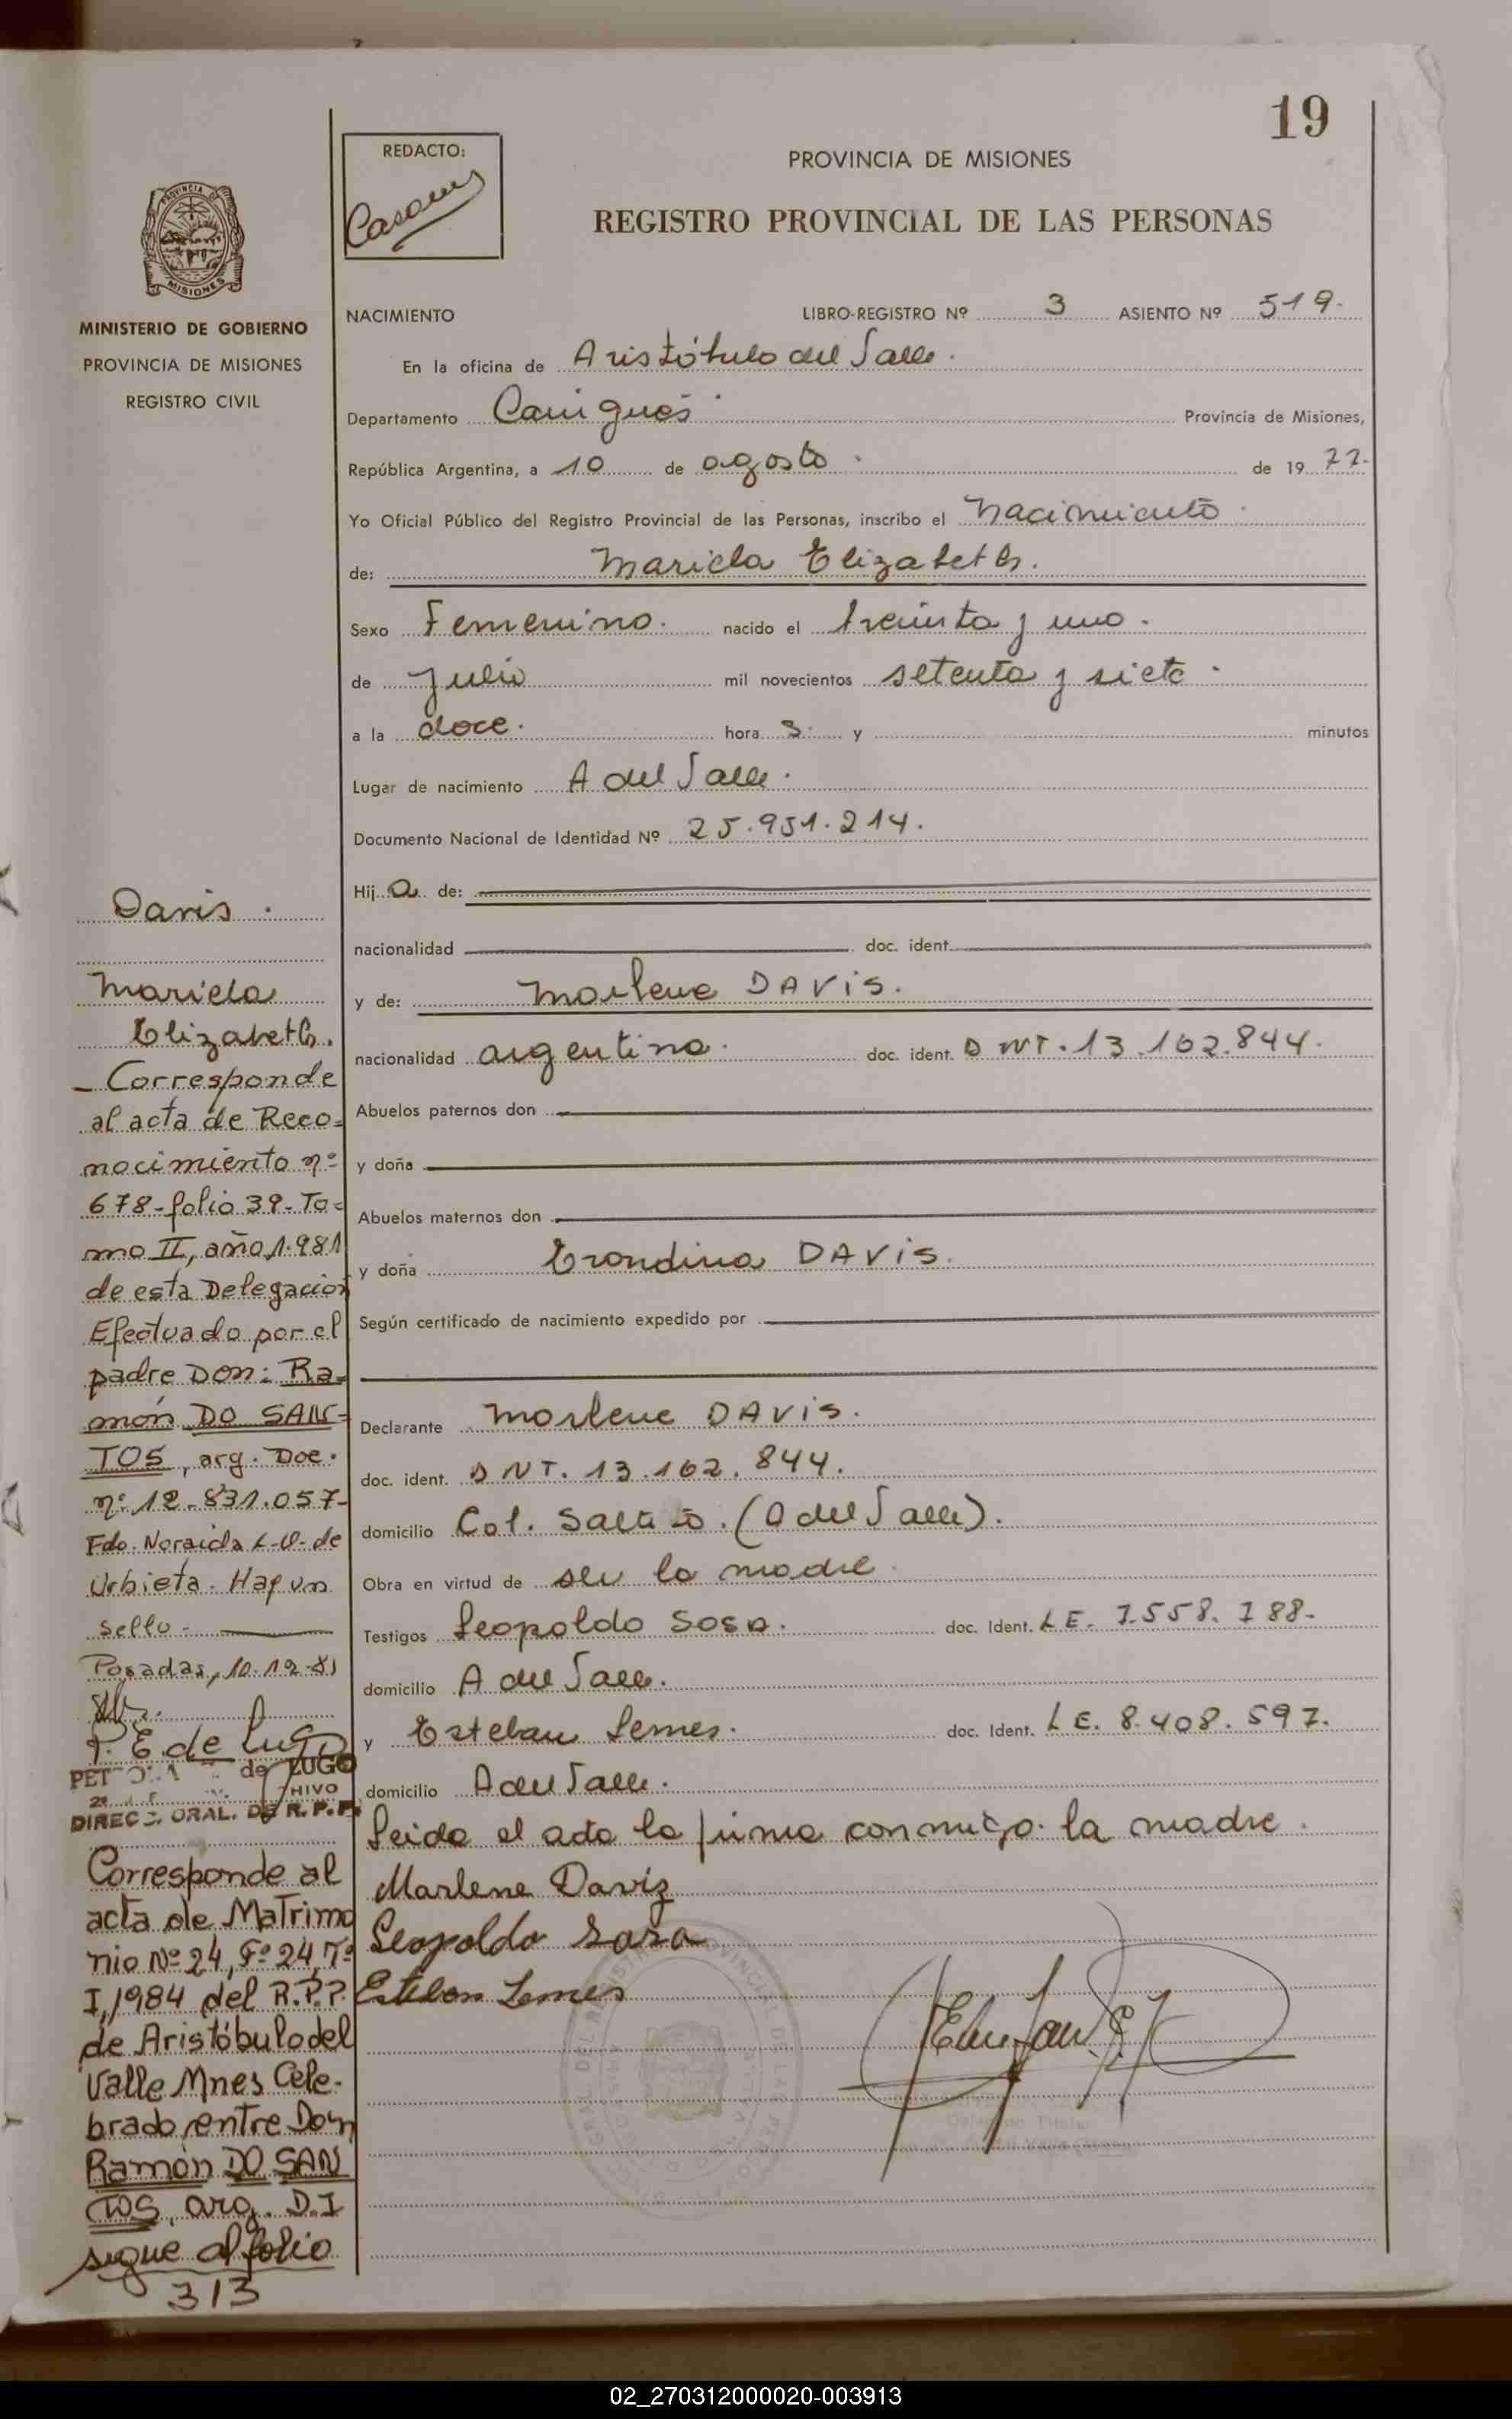 19
REDACTO:
PROVINCIA DE MISIONES
REGISTRO PROVINCIAL DE LAS PERSONAS
PROVINCIA DE
MISIONES
MINISTERIO DE GOBIERNO
PROVINCIA DE MISIONES
REGISTRO CIVIL
NACIMIENTO LIBRO-REGISTRO Nº 3 ASIENTO Nº 519.
En la oficina de Aristóbulo del Valle.
Departamento Cainguás
Provincia de Misiones,
República Argentina, a 10 de agosto. de 19 77.
Yo Oficial Público del Registro Provincial de las Personas, inscribo el Nacimiento
de: Mariela Elizabeth.
Sexo Femenino. nacido el treinta y uno.
de Julio mil novecientos setenta y siete.
a la doce. hora s. y minutos
Lugar de nacimiento A del Valle.
Documento Nacional de Identidad Nº 25.951.214.
Hij a de:
nacionalidad doc. ident.
y de: Marlene DAVIS.
nacionalidad argentina. doc. ident. DNI. 13.162.844.
Abuelos paternos don
y doña
Abuelos maternos don
y doña Erondina DAVIS.
Según certificado de nacimiento expedido por
Declarante Marlene DAVIS.
doc. ident. DNI. 13.162.844.
domicilio Col. Salto. (A del Valle).
Obra en virtud de ser la madre.
Testigos Leopoldo Sosa. doc. Ident. LE. 7.558.788.
domicilio A del Valle.
y Esteban Lemes. doc. Ident. LE. 8.408.597.
domicilio A del Valle.
Leida el acta la firma conmigo. la madre.
Marlene Daviz
Leopoldo Sosa
Esteban Lemes
Davis.
Mariela
Elizabeth.
- Corresponde
al acta de Reco=
nocimiento nº
678-folio 39-To=
mo II, año 1.981
de esta Delegación
Efectuado por el
padre Don: Ra=
món DO SAN=
TOS, arg. Doc.
nº 12.831.057-
Fdo. Noraida L. de
Urbieta. Hay un
sello.-
Posadas, 10.12.81
P. E. de Lugo
de LUGO
DIREC. GRAL. DE R.P.P.
Corresponde al
acta de Matrimo
nio Nº 24, Fº 24, Tº
I, 1984 del R.P.P.
de Aristóbulo del
Valle Mnes Cele-
brado entre Don
Ramón DO SAN
TOS, arg. D.I
sigue al folio
313
02_270312000020-003913